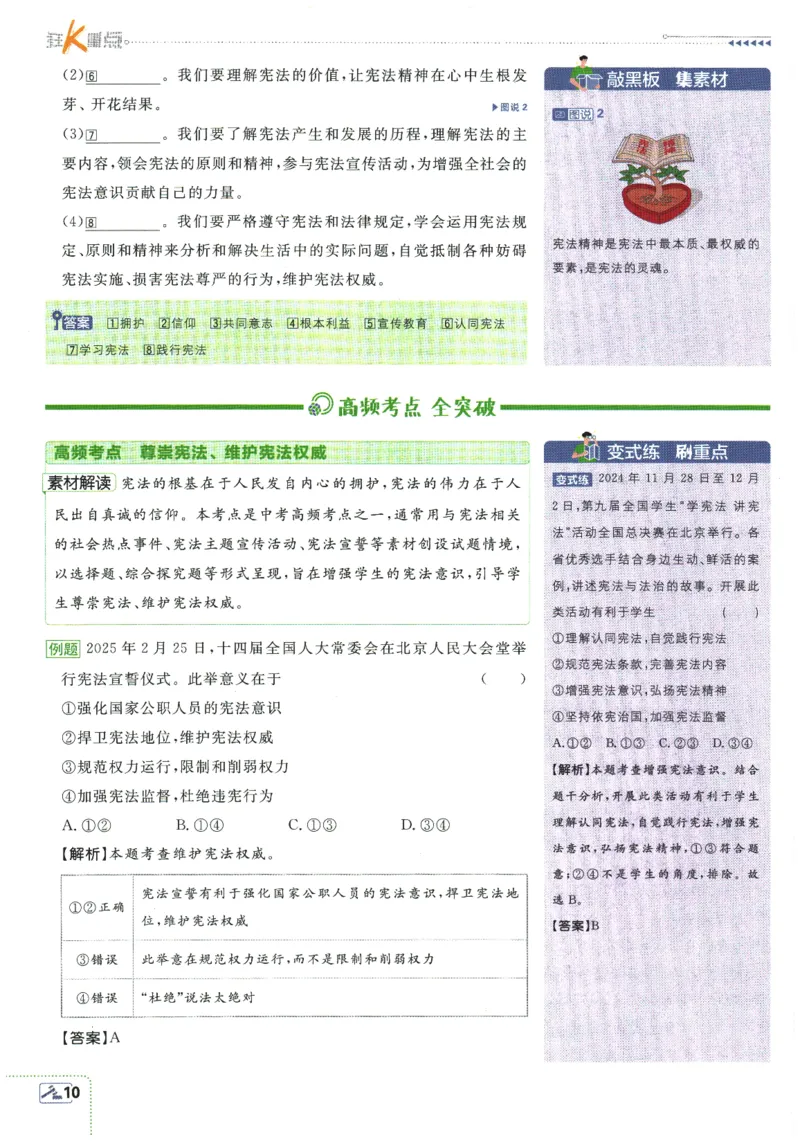 狂K重点
(2)⑥________。我们要理解宪法的价值,让宪法精神在心中生根发
芽、开花结果。 ▶图说2
(3)⑦________。我们要了解宪法产生和发展的历程,理解宪法的主
要内容,领会宪法的原则和精神,参与宪法宣传活动,为增强全社会的
宪法意识贡献自己的力量。
(4)⑧________。我们要严格遵守宪法和法律规定,学会运用宪法规
定、原则和精神来分析和解决生活中的实际问题,自觉抵制各种妨碍
宪法实施、损害宪法尊严的行为,维护宪法权威。
答案 ①拥护 ②信仰 ③共同意志 ④根本利益 ⑤宣传教育 ⑥认同宪法
⑦学习宪法 ⑧践行宪法
敲黑板 集素材
图说2
宪法精神是宪法中最本质、最权威的
要素,是宪法的灵魂。
高频考点 全突破
高频考点 尊崇宪法、维护宪法权威
素材解读 宪法的根基在于人民发自内心的拥护,宪法的伟力在于人
民出自真诚的信仰。本考点是中考高频考点之一,通常用与宪法相关
的社会热点事件、宪法主题宣传活动、宪法宣誓等素材创设试题情境,
以选择题、综合探究题等形式呈现,旨在增强学生的宪法意识,引导学
生尊崇宪法、维护宪法权威。
例题 2025年2月25日,十四届全国人大常委会在北京人民大会堂举
行宪法宣誓仪式。此举意义在于 ( )
①强化国家公职人员的宪法意识
②捍卫宪法地位,维护宪法权威
③规范权力运行,限制和削弱权力
④加强宪法监督,杜绝违宪行为
A.①② B.①④ C.①③ D.③④
【解析】本题考查维护宪法权威。
①②正确 宪法宣誓有利于强化国家公职人员的宪法意识,捍卫宪法地
位,维护宪法权威
③错误 此举意在规范权力运行,而不是限制和削弱权力
④错误 “杜绝”说法太绝对
【答案】A
变式练 刷重点
变式练 2024年11月28日至12月
2日,第九届全国学生“学宪法 讲宪
法”活动全国总决赛在北京举行。各
省优秀选手结合身边生动、鲜活的案
例,讲述宪法与法治的故事。开展此
类活动有利于学生 ( )
①理解认同宪法,自觉践行宪法
②规范宪法条款,完善宪法内容
③增强宪法意识,弘扬宪法精神
④坚持依宪治国,加强宪法监督
A.①② B.①③ C.②③ D.③④
【解析】本题考查增强宪法意识。结合
题干分析,开展此类活动有利于学生
理解认同宪法,自觉践行宪法,增强宪
法意识,弘扬宪法精神,①③符合题
意;②④不是学生的角度,排除。故
选B。
【答案】B
10